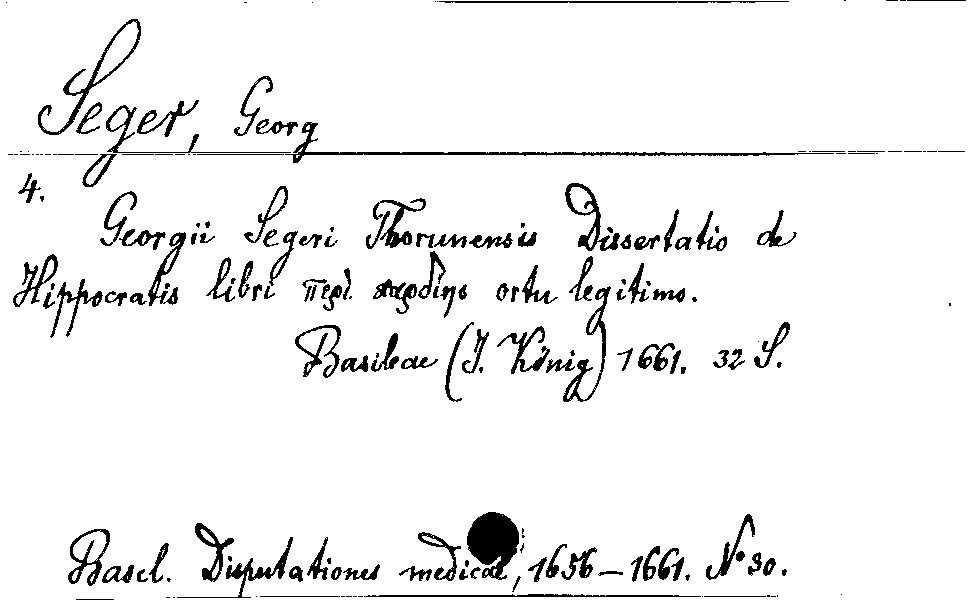 Seger, Georg
4.
Georgii Segeri Thorunensis Dissertatio de
Hippocratis libri περὶ καρδίης ortu legitimo.
Basileae (J. König) 1661. 32 S.
Basel. Disputationes medicae, 1656-1661. No 30.